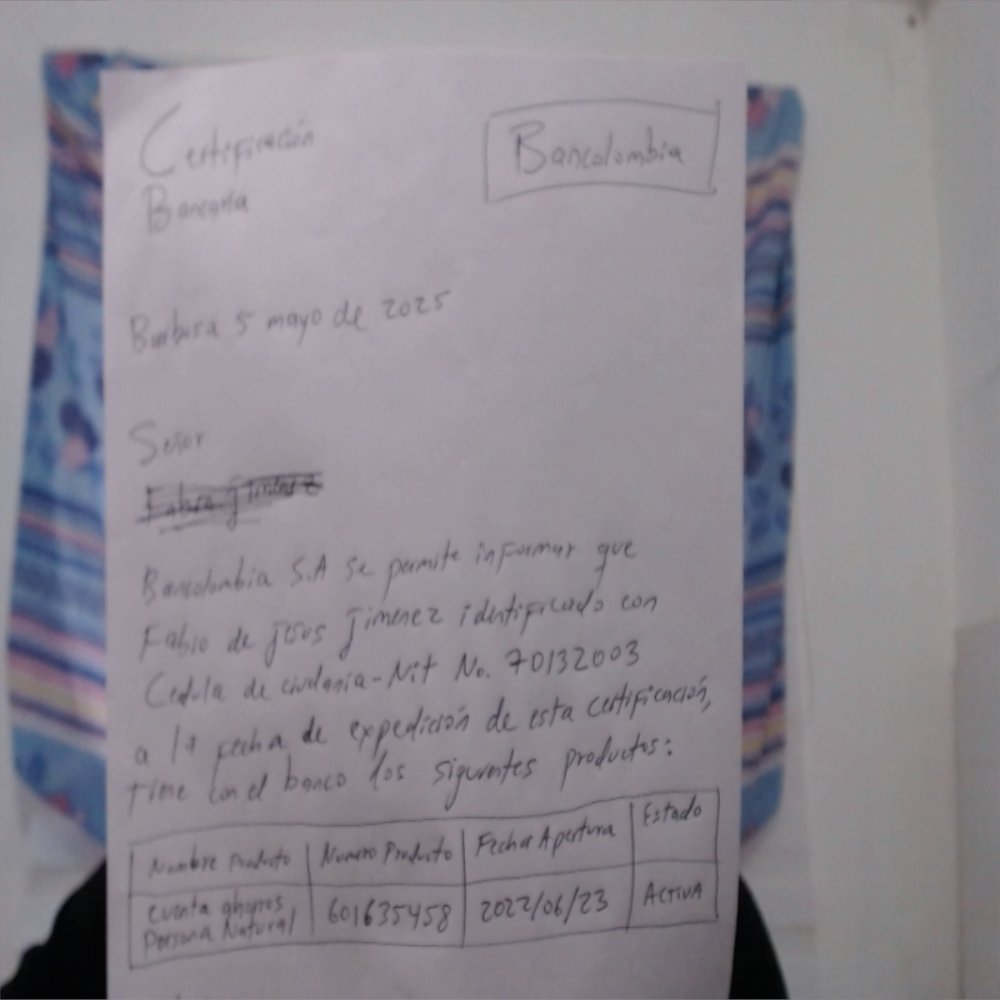 Certificación
Bancaria
Bancolombia
Barbosa 5 mayo de 2025
Señor
Fabio Jimenez
Bancolombia S.A se permite informar que
Fabio de Jesus Jimenez identificado con
Cedula de ciudania-Nit No. 70132003
a la fecha de expedición de esta certificación,
tiene con el banco los siguientes productos:
Nombre Producto Numero Producto Fecha Apertura Estado
cuenta ahorros 601635458 2022/06/23 ACTIVA
Persona Natural